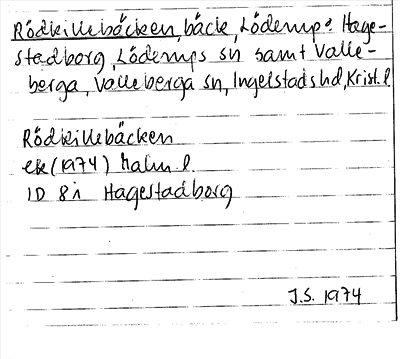 Rödkillebäcken, bäck, Löderup o. Hage-
stadborg, Löderups sn samt Valle-
berga, Valleberga sn, Ingelstads hd, Krist. l.
Rödkillebäcken
ek (1974) Malm. l.
1D 8i Hagestadborg
J.S. 1974